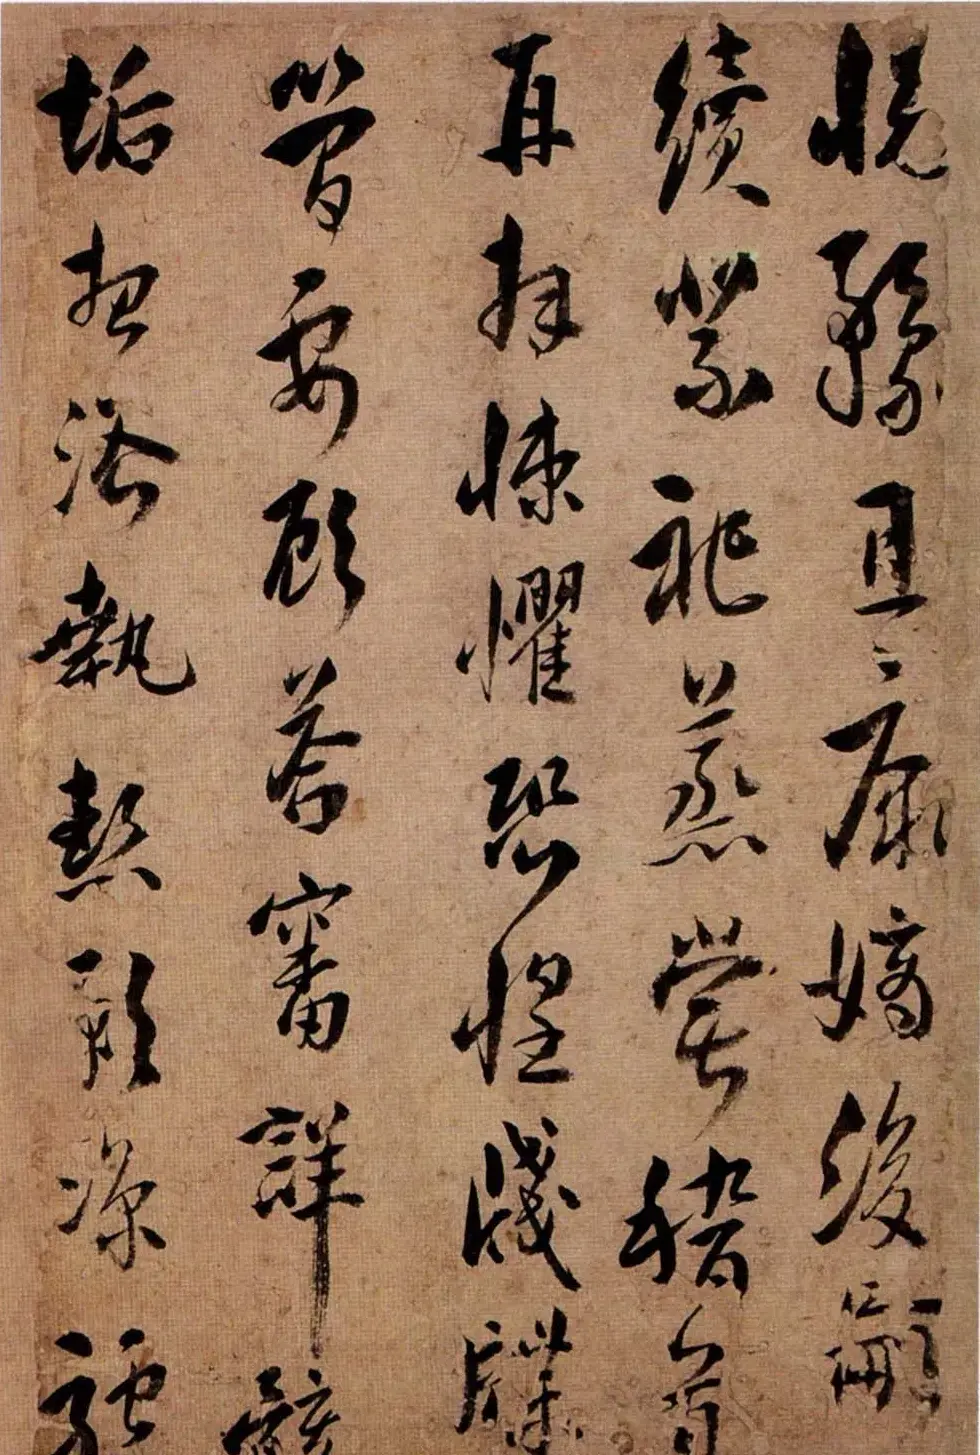 悅豫且康嫡後嗣
續祭祀蒸嘗稽顙
再拜悚懼恐惶牋牒
簡要顧答審詳骸
垢想浴執熱願涼驢